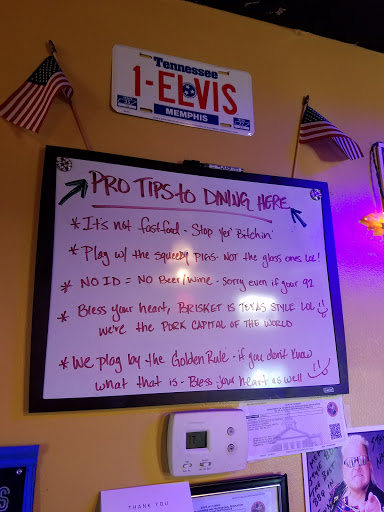 Tennessee
1-ELVIS
MEMPHIS
PRO TIPS to DINING HERE
* It's not fastfood - Stop yer' Bitchin'
* Play w/ the squeeby PIGS - NOT the glass ones Lol!
* NO ID = NO Beer/Wine - Sorry even if your 92
* Bless your heart, BRISKET IS TEXAS STYLE LOL
we're the PORK CAPITAL OF THE WORLD
* We play by the Golden Rule - if you don't know
what that is - Bless your heart as well
THANK YOU